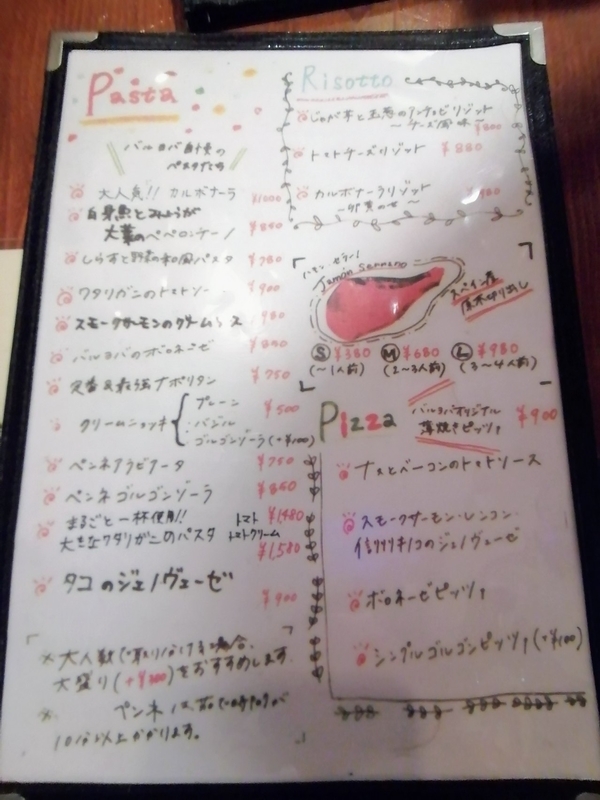 Pasta
バルヨバ自慢の
パスタたち
大人気!! カルボナーラ ¥1000
白身魚とみょうが
大葉のペペロンチーノ ¥850
しらすと野菜の和風パスタ ¥780
ワタリガニのトマトソース ¥900
スモークサーモンのクリームソース
バルヨバのボロネーゼ ¥800
定番&最強ナポリタン ¥750
クリームニョッキ プレーン ¥500
バジル
ゴルゴンゾーラ(+¥100)
ペンネアラビアータ ¥750
ペンネゴルゴンゾーラ ¥850
まるごと一杯使用!! トマト ¥1,480
大きなワタリガニのパスタ トマトクリーム
¥1,580
タコのジェノヴェーゼ ¥900
※大人数で取り分ける場合、
大盛り(+¥300)をおすすめします
※ ペンネは、茹で時間が
10分以上かかります。
Risotto
じゃが芋と玉葱のアンチョビリゾット
～チーズ風味～ ¥800
トマトチーズリゾット ¥880
カルボナーラリゾット
～卵黄のせ～
ハモン・セラーノ
Jamón Serrano
スペイン産
原木切り出し
S ¥380 M ¥680 L ¥980
(～1人前) (2～3人前) (3～4人前)
Pizza
バルヨバオリジナル
薄焼きピッツァ ¥900
ナスとベーコンのトマトソース
スモークサーモン・レンコン・
信州キノコのジェノヴェーゼ
ボロネーゼピッツァ
シンプルゴルゴンピッツァ(+¥100)